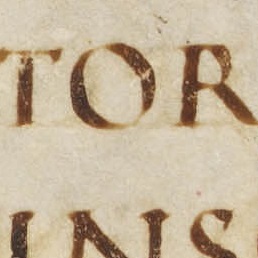 TOR
INS